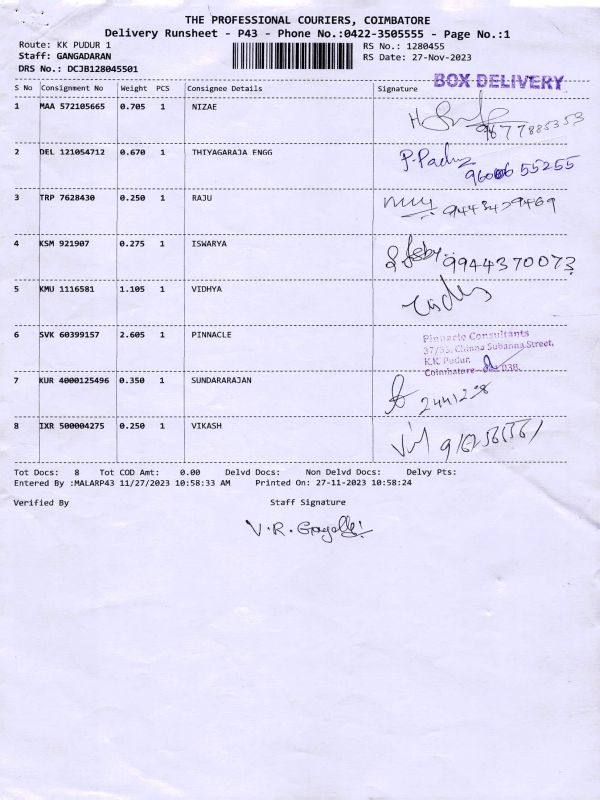 THE PROFESSIONAL COURIERS, COIMBATORE
Delivery Runsheet - P43 - Phone No.:0422-3505555 - Page No.:1
Route: KK PUDUR 1 RS No.: 1280455
Staff: GANGADARAN RS Date: 27-Nov-2023
DRS No.: DCJB128045501
BOX DELIVERY
S No Consignment No Weight PCS Consignee Details Signature
1 MAA 572105665 0.705 1 NIZAE 9677885353
2 DEL 121054712 0.670 1 THIYAGARAJA ENGG 96006 55255
3 TRP 7628430 0.250 1 RAJU
4 KSM 921907 0.275 1 ISWARYA 9944370073
5 KMU 1116581 1.105 1 VIDHYA
6 SVK 60399157 2.605 1 PINNACLE
Pinnacle Consultants
37/55, Chinna Subanna Street,
K.K. Pudur,
Coimbatore 038.
7 KUR 4000125496 0.350 1 SUNDARARAJAN
8 IXR 500004275 0.250 1 VIKASH
Tot Docs: 8 Tot COD Amt: 0.00 Delvd Docs: Non Delvd Docs: Delvy Pts:
Entered By :MALARP43 11/27/2023 10:58:33 AM Printed On: 27-11-2023 10:58:24
Verified By Staff Signature